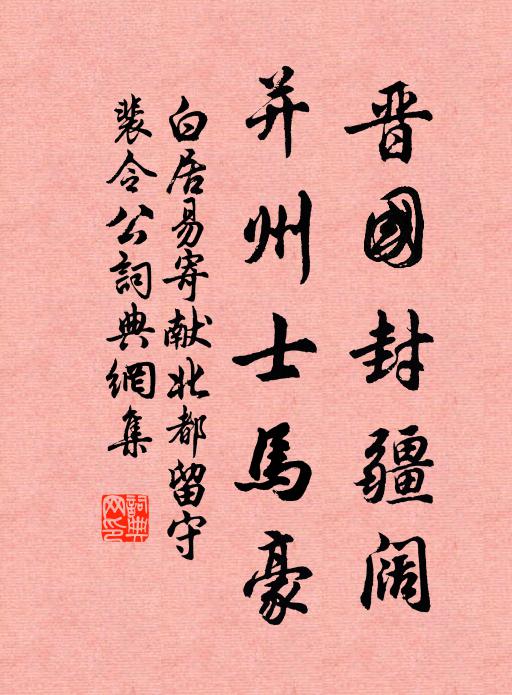 晋國封疆阔
并州士馬豪
白居易寄献北都留守
裴令公詞典網集
詞典
网印